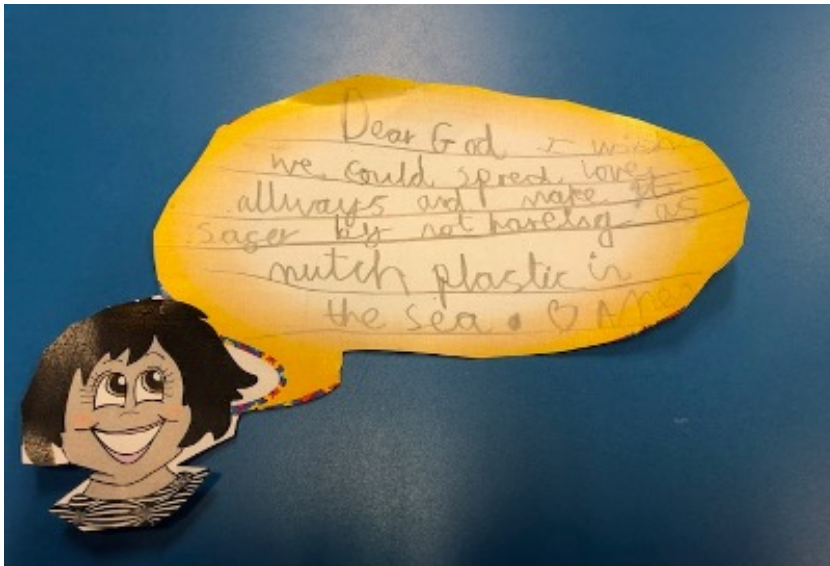 Dear God I wish
we could spread love
allways and make it
safer by not haveing as
mutch plastic in
the sea. ♡ Amen